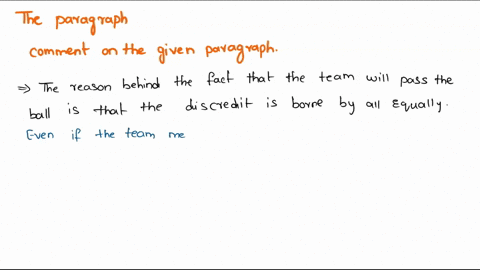 The paragraph
comment on the given paragraph.
⇒ The reason behind the fact that the team will pass the
ball is that the discredit is borne by all equally.
Even if the team me